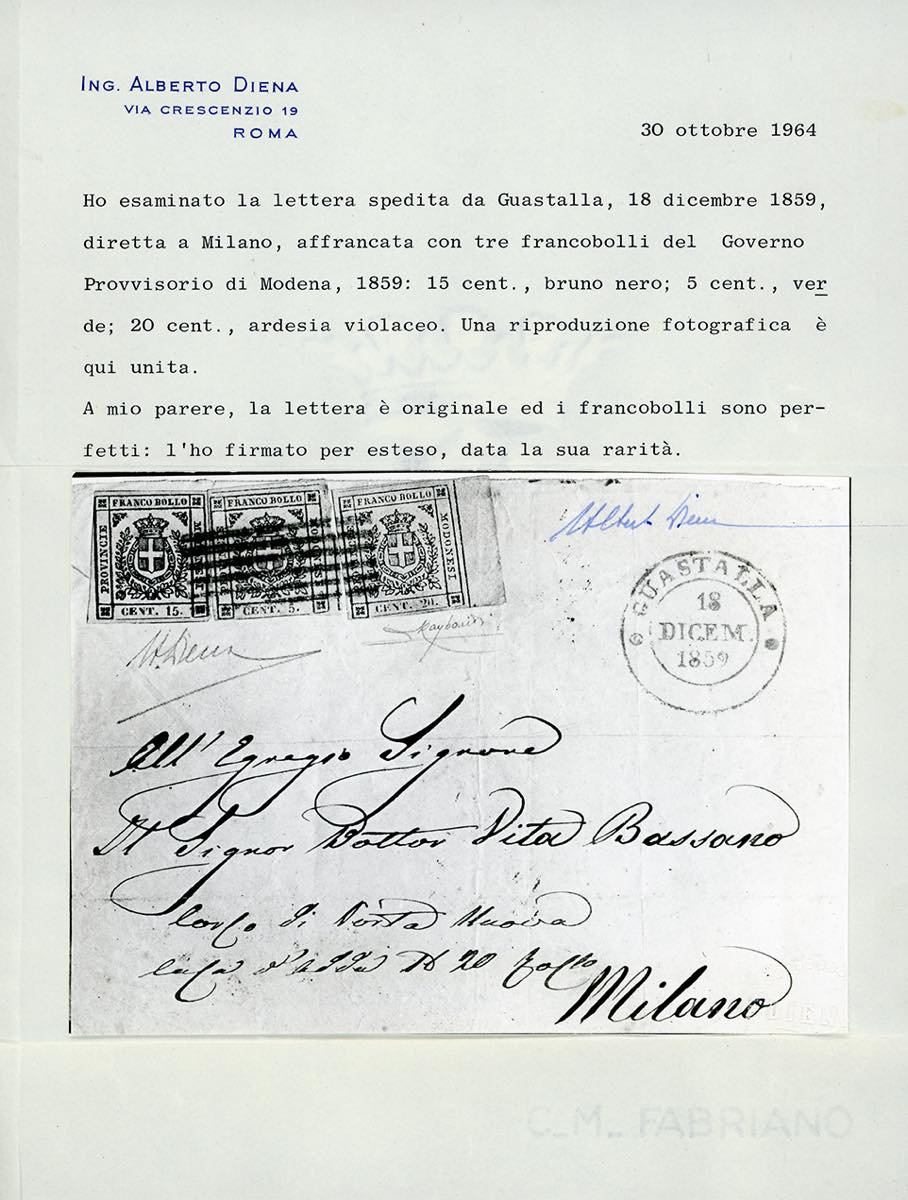 ING. ALBERTO DIENA
VIA CRESCENZIO 19
ROMA
30 ottobre 1964
Ho esaminato la lettera spedita da Guastalla, 18 dicembre 1859,
diretta a Milano, affrancata con tre francobolli del Governo
Provvisorio di Modena, 1859: 15 cent., bruno nero; 5 cent., ver
de; 20 cent., ardesia violaceo. Una riproduzione fotografica è
qui unita.
A mio parere, la lettera è originale ed i francobolli sono per-
fetti: l'ho firmato per esteso, data la sua rarità.
FRANCO BOLLO
PROVINCIE
CENT. 15.
FRANCO BOLLO
CENT. 5.
FRANCO BOLLO
MODONESI
CENT. 20.
GUASTALLA
18
DICEM.
1859
All' Egregio Signore
Il Signor Dottor Vita Bassano
Corso di Porta Nuova
Casa d'Adda N 20
Milano
C.M. FABRIANO